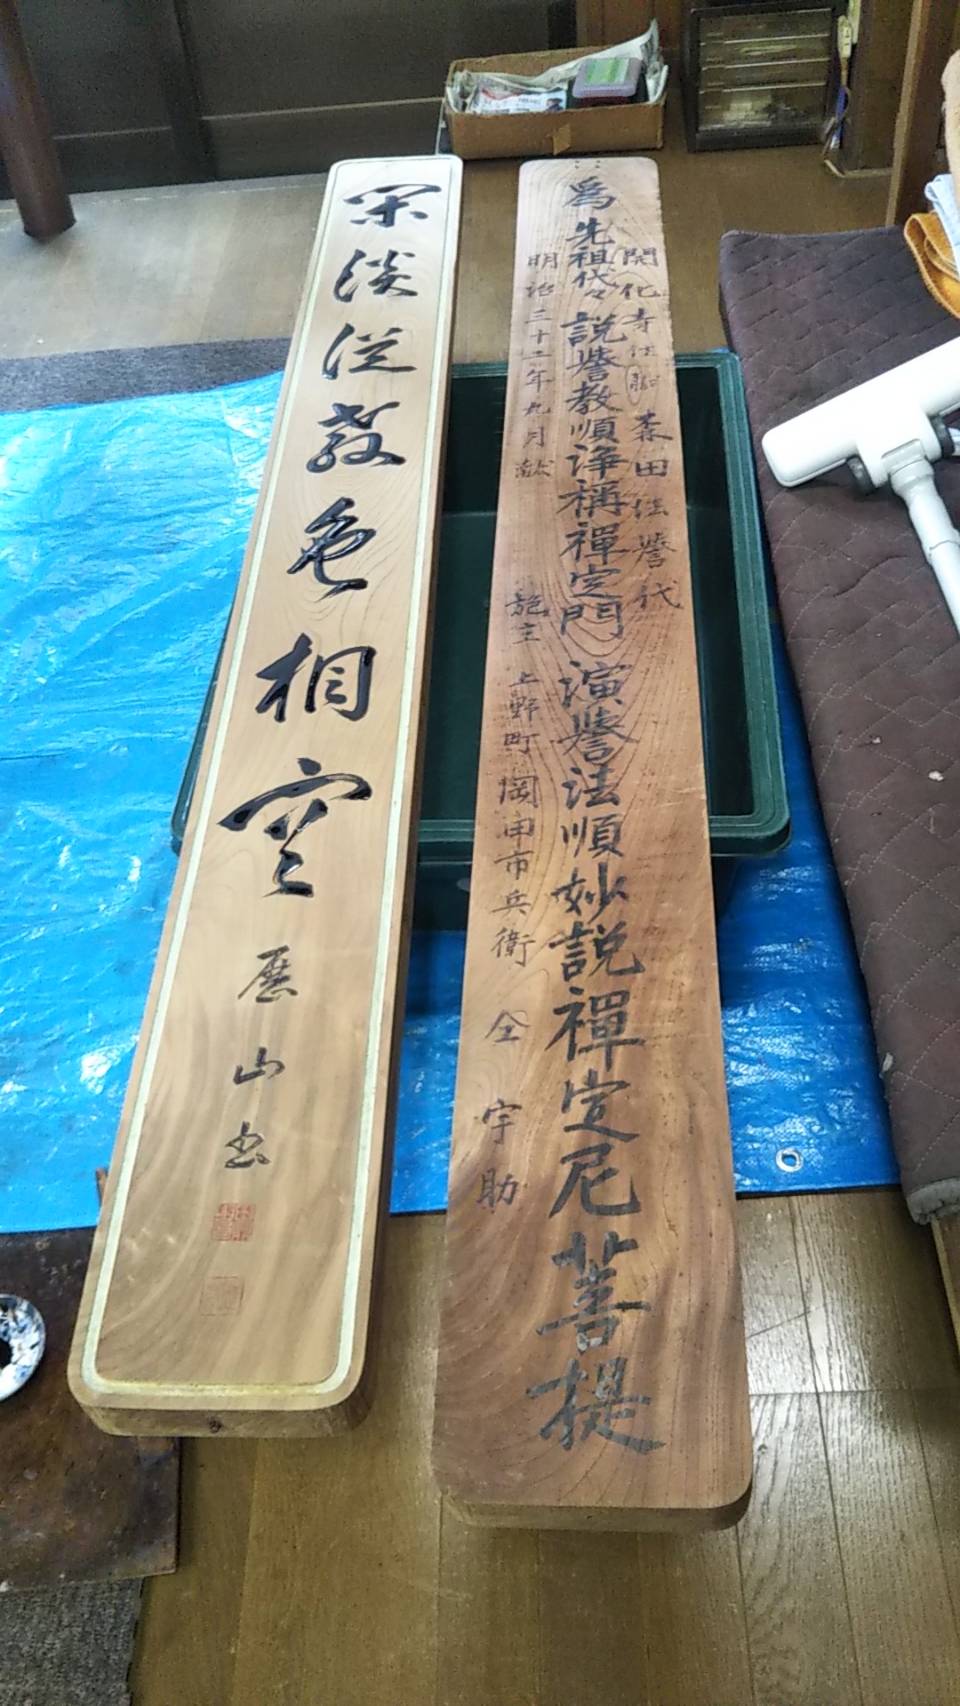 開化寺法脚 森田法譽代
爲先祖代々説譽教順淨稱禪定門 演譽法順妙説禪定尼菩提
明治三十二年九月献
施主 上野町 岡田市兵衛 仝 宇助
閑淡従教色相空
歴山書